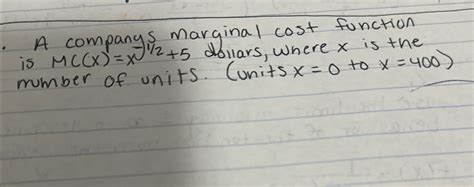 . A companys marginal cost function
is MC(x) = x^-1/2 + 5 dollars, where x is the
number of units. (units x = 0 to x = 400)